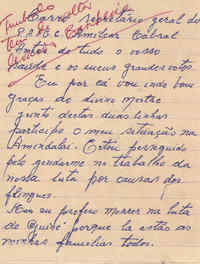 Caro secretário geral do
P.A.I.G.C. Amilcar Cabral
Antes de tudo o vosso
saúde e os meus grandes votos.
Eu por cá vou indo bem
graças do divino mestre
junto destas duas linhas
participo o meu situação na
Amindalai. Estou perseguido
pelo gendarme no trabalho da
nossa luta por causas dos
Eu prefiro morrer na luta
de Guiné porque la estão as
minhas familias todos.